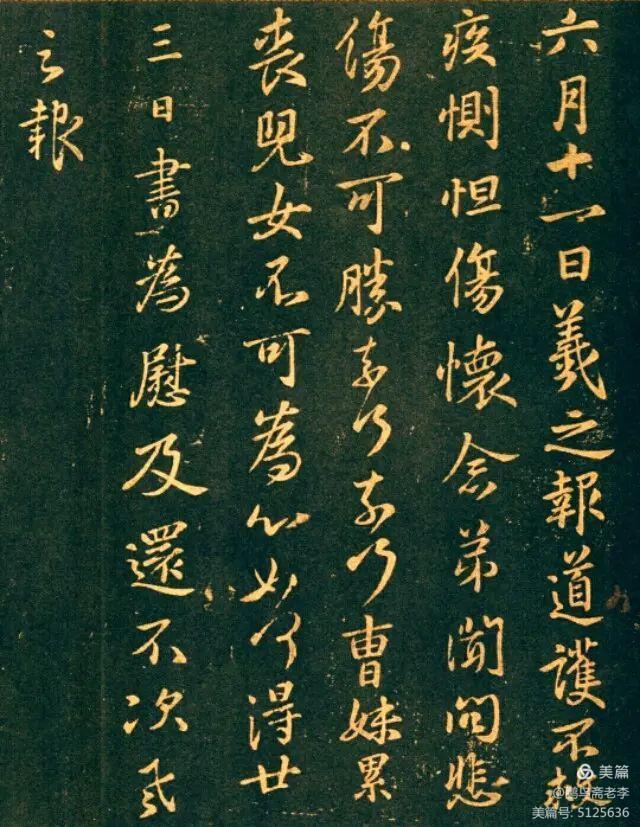 六月十一日羲之報道護不救
疾惻怛傷懷念弟聞問悲
傷不可勝奈何奈何曹妹累
喪兒女不可為心如何得廿
三日書為慰及還不次羲
之報
美篇
鸟斋老李
美篇号: 5125636